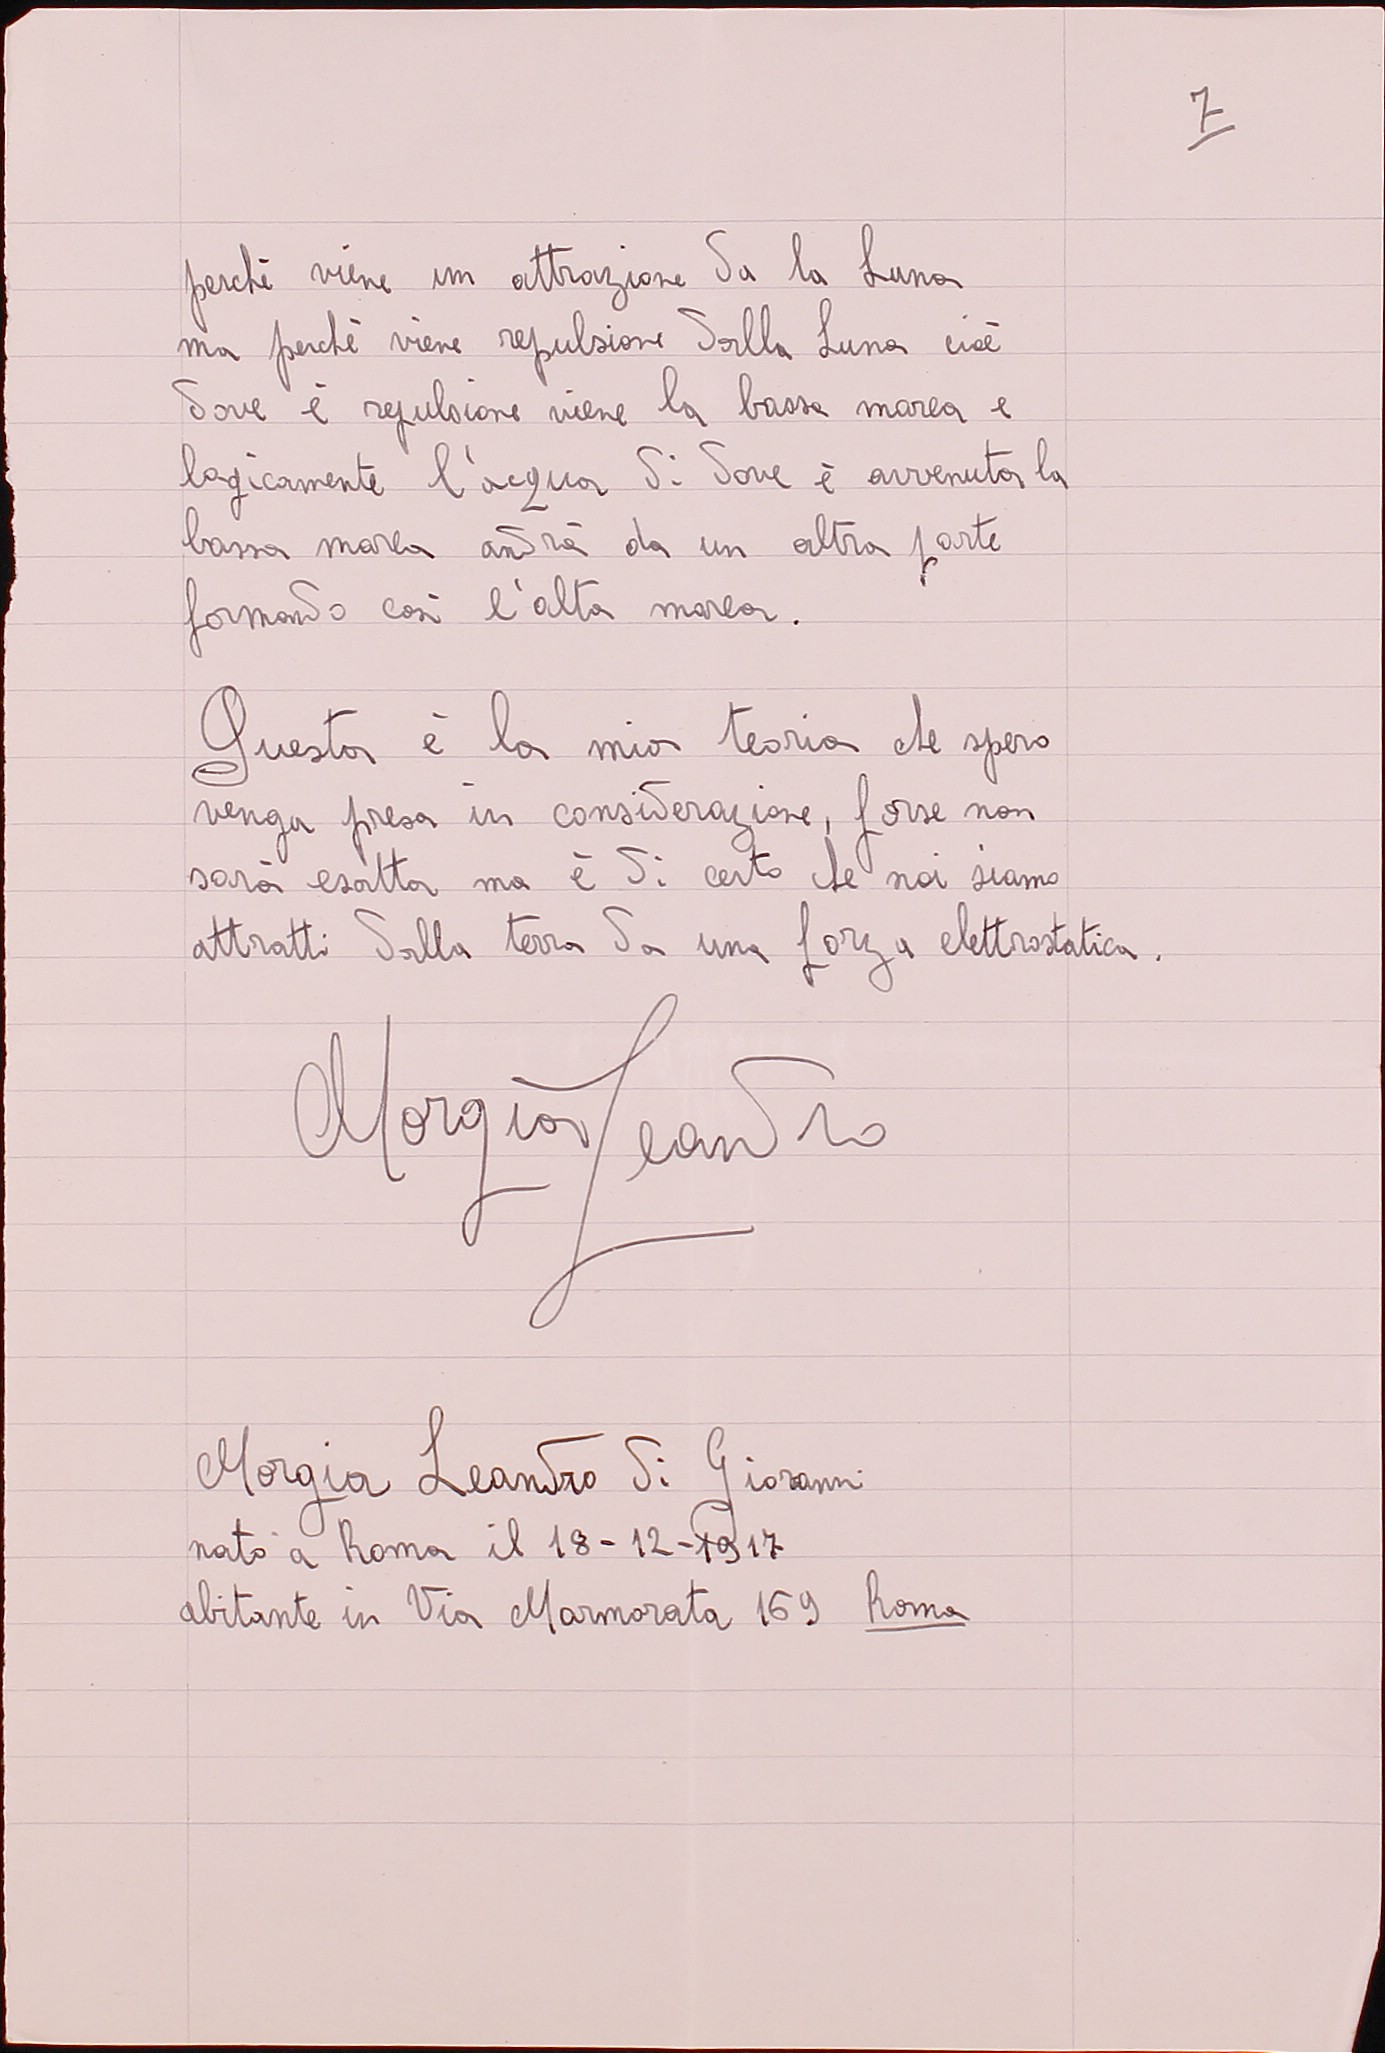 7
perchè viene un attrazione da la Luna
ma perchè viene repulsione dalla Luna cioè
dove è repulsione viene la bassa marea e
logicamente l'acqua di dove è avvenuta la
bassa marea andrà da un altra parte
formando così l'alta marea.
Questa è la mia teoria che spero
venga presa in considerazione, forse non
sarà esatta ma è di certo che noi siamo
attratti dalla terra da una forza elettrostatica.
Morgia Leandro
Morgia Leandro di Giovanni
nato a Roma il 18-12-1917
abitante in Via Marmorata 169 Roma